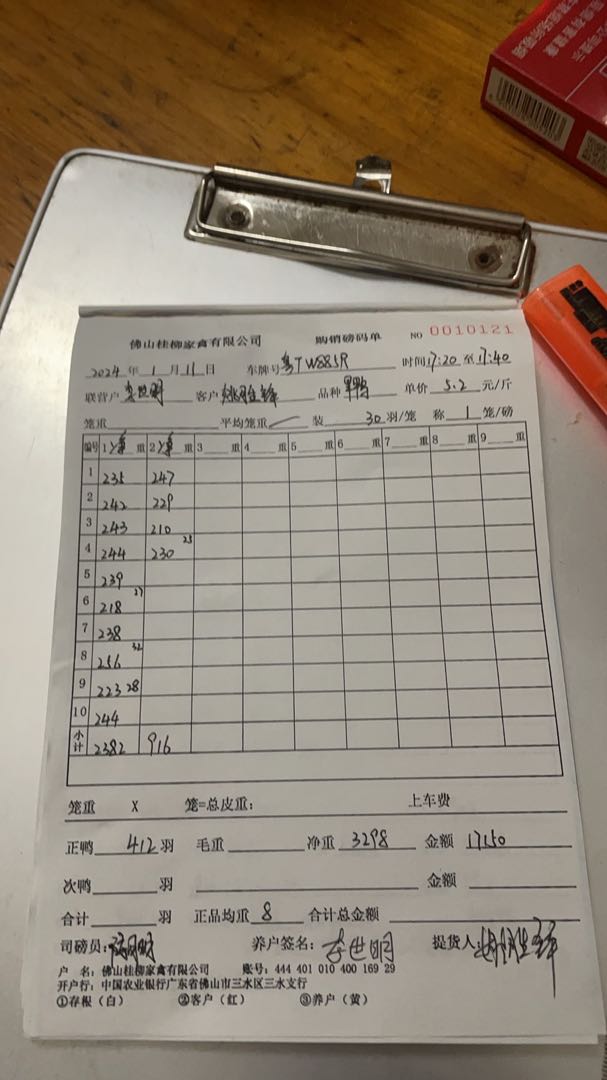 佛山桂柳家禽有限公司 购销磅码单 NO 0010121
2024 年 1 月 11 日 车牌号 粤TW885R 时间 17:20 至 17:40
联营户 李世明 客户 品种 单价 5.2 元/斤
笼重 平均笼重 装 30 羽/笼 称 1 笼/磅
编号 1 重 2 重 3 重 4 重 5 重 6 重 7 重 8 重 9 重
1 235 247
2 242 229
3 243 210
4 244 230 25
5 239
6 218 27
7 238
8 256 32
9 223 28
10 244
小计 2382 916
笼重 X 笼=总皮重: 上车费
正鸭 412 羽 毛重 净重 3298 金额 17150
次鸭 羽 金额
合计 羽 正品均重 8 合计总金额
司磅员: 养户签名: 李世明 提货人:
户 名: 佛山桂柳家禽有限公司 账号: 444 401 010 400 169 29
开户行: 中国农业银行广东省佛山市三水区三水支行
①存根(白) ②客户(红) ③养户(黄)